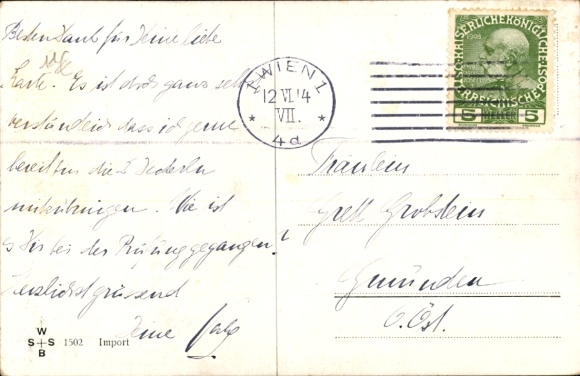 Besten Dank für Deine liebe
Karte. Es ist doch ganz selbst
verständlich dass ich gerne
bereit bin die 2
mitzubringen. Wie ist
es Dir bei der Prüfung gegangen?
Herzlichst grüssend
Deine
W
S S
B
1502 Import
1 WIEN 1
12 VI 14
VII.
* 4d *
KAISERLICHE KÖNIGLICHE
ÖSTERREICHISCHE POST
1908
5 HELLER 5
Fräulein
Grete Grobstein
Gmünden
O. Öst.